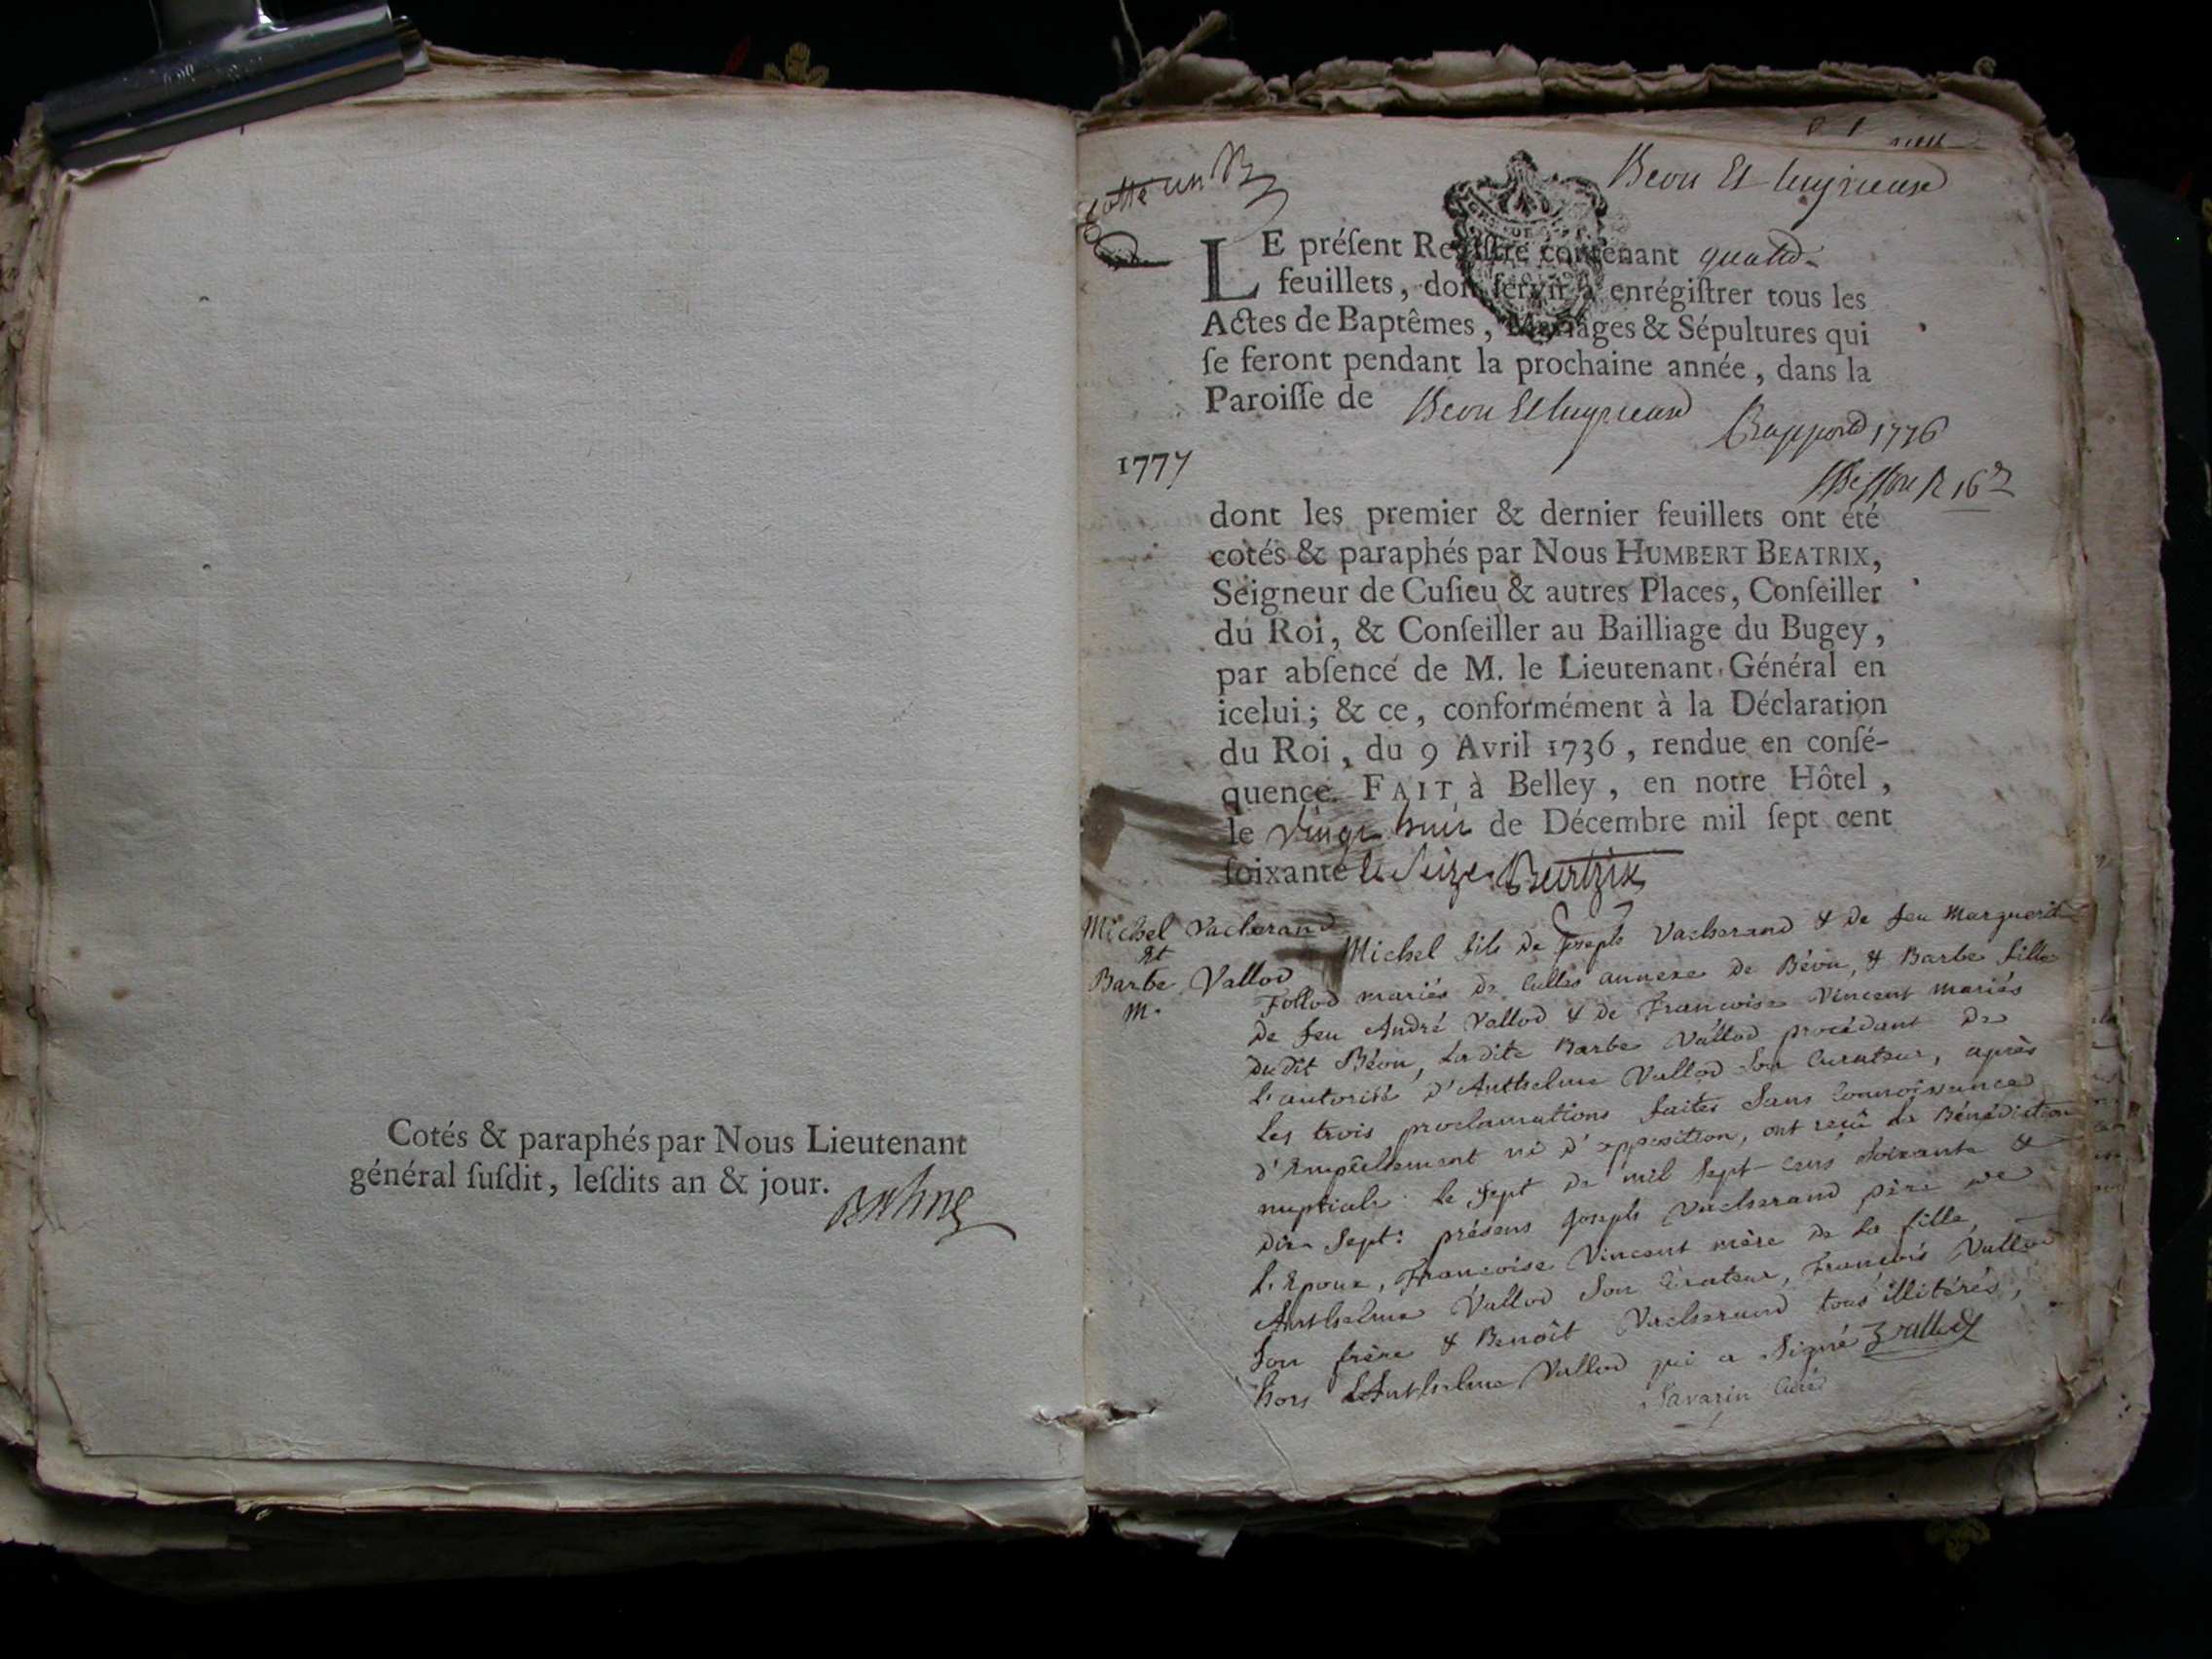 Cotés & paraphés par Nous Lieutenant
général ſuſdit, leſdits an & jour.
Cotté un B
Beon Et luyrieux
LE préſent Regiſtre contenant quatre
feuillets, doit ſervir à enrégiſtrer tous les
Actes de Baptêmes, Mariages & Sépultures qui
ſe feront pendant la prochaine année, dans la
Paroiſſe de Beon Et luyrieux
Rapporté 1776
1777
dont les premier & dernier feuillets ont été
cotés & paraphés par Nous HUMBERT BEATRIX,
Seigneur de Cuſieu & autres Places, Conſeiller
du Roi, & Conſeiller au Bailliage du Bugey,
par abſence de M. le Lieutenant Général en
icelui; & ce, conformément à la Déclaration
du Roi, du 9 Avril 1736, rendue en conſé-
quence. FAIT à Belley, en notre Hôtel,
le vingt huit de Décembre mil ſept cent
ſoixante & Seize Beatrix
Michel Vacherand
Et
Barbe Vallod
M.
Michel fils de Joseph Vacherand & de feu Marguerite
Follod mariés de Culles annexe de Béon, & Barbe fille
de feu André Vallod & de Francoise Vincent mariés
dudit Béon, Ladite Barbe Vallod procédant de
L'autorité d'Anthelme Vallod Son Curateur, après
Les trois proclamations faites Sans Connoissance
d'Empêchement ni d'opposition, ont reçû La Bénédiction
nuptiale le Sept de mil Sept-cens Soixante &
dix Sept: présens Joseph Vacherand père de
L'Epoux, Francoise Vincent mère de La fille,
Anthelme Vallod Son Curateur, Francois Vallod
Son frère & Benoît Vacherand tous illitérés,
hors Anthelme Vallod qui a Signé Vallod
Savarin Curé